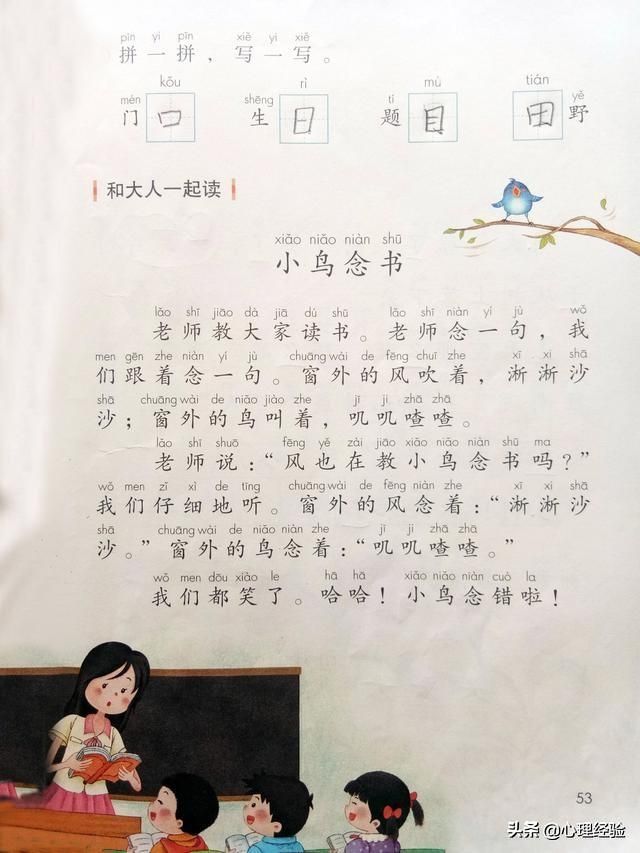 pīn yi pīn xiě yi xiě
拼一拼，写一写。
kǒu rì mù tián
mén shēng tí yě
门口 生日 题目 田野
和大人一起读
xiǎo niǎo niàn shū
小鸟念书
lǎo shī jiāo dà jiā dú shū lǎo shī niàn yí jù wǒ
老师教大家读书。老师念一句，我
men gēn zhe niàn yí jù chuāng wài de fēng chuī zhe xī xī shā
们跟着念一句。窗外的风吹着，淅淅沙
shā chuāng wài de niǎo jiào zhe jī ji zhā zhā
沙；窗外的鸟叫着，叽叽喳喳。
lǎo shī shuō fēng yě zài jiāo xiǎo niǎo niàn shū ma
老师说：“风也在教小鸟念书吗？”
wǒ men zǐ xì de tīng chuāng wài de fēng niàn zhe xī xī shā
我们仔细地听。窗外的风念着：“淅淅沙
shā chuāng wài de niǎo niàn zhe jī ji zhā zhā
沙。”窗外的鸟念着：“叽叽喳喳。”
wǒ men dōu xiào le hā hā xiǎo niǎo niàn cuò la
我们都笑了。哈哈！小鸟念错啦！
53
头条 @心理经验